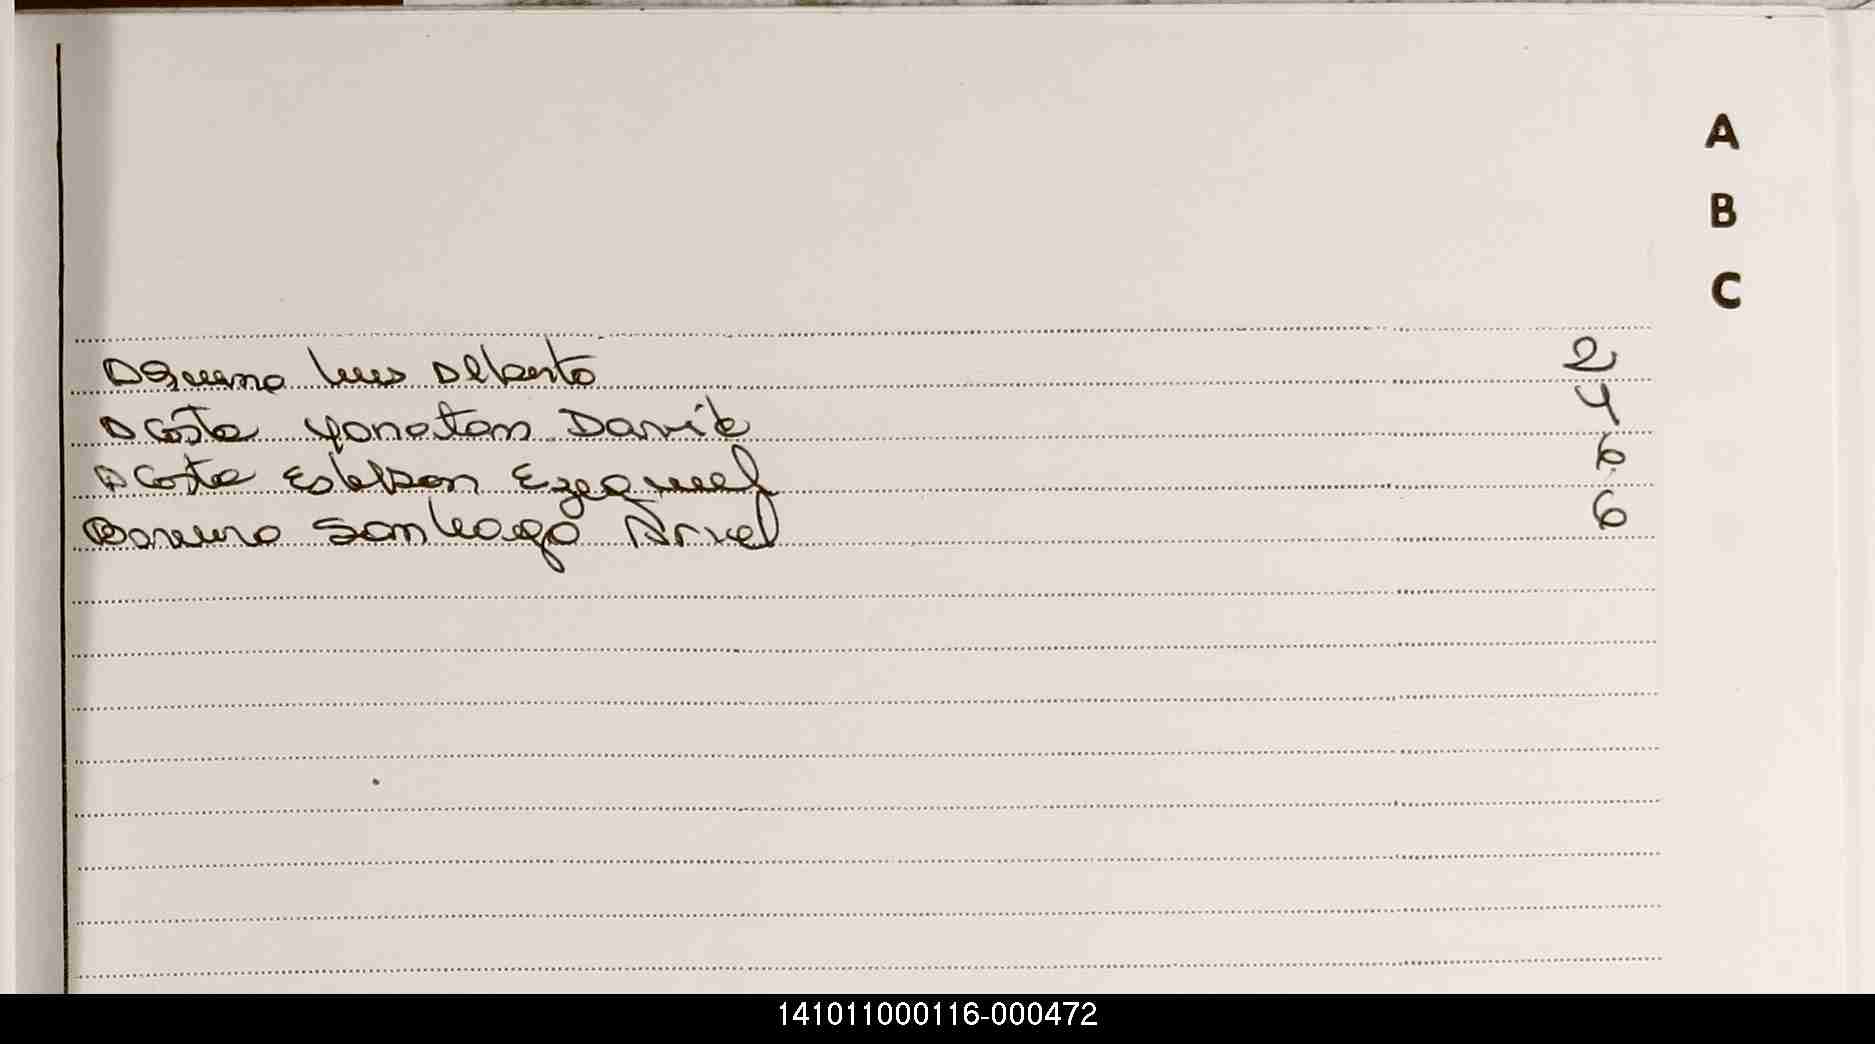 A
B
C
Aguena Luis Alberto 2
Acosta Yonatan David 4
Acosta Esteban Ezequiel 6
Barreiro Santiago 6
141011000116-000472